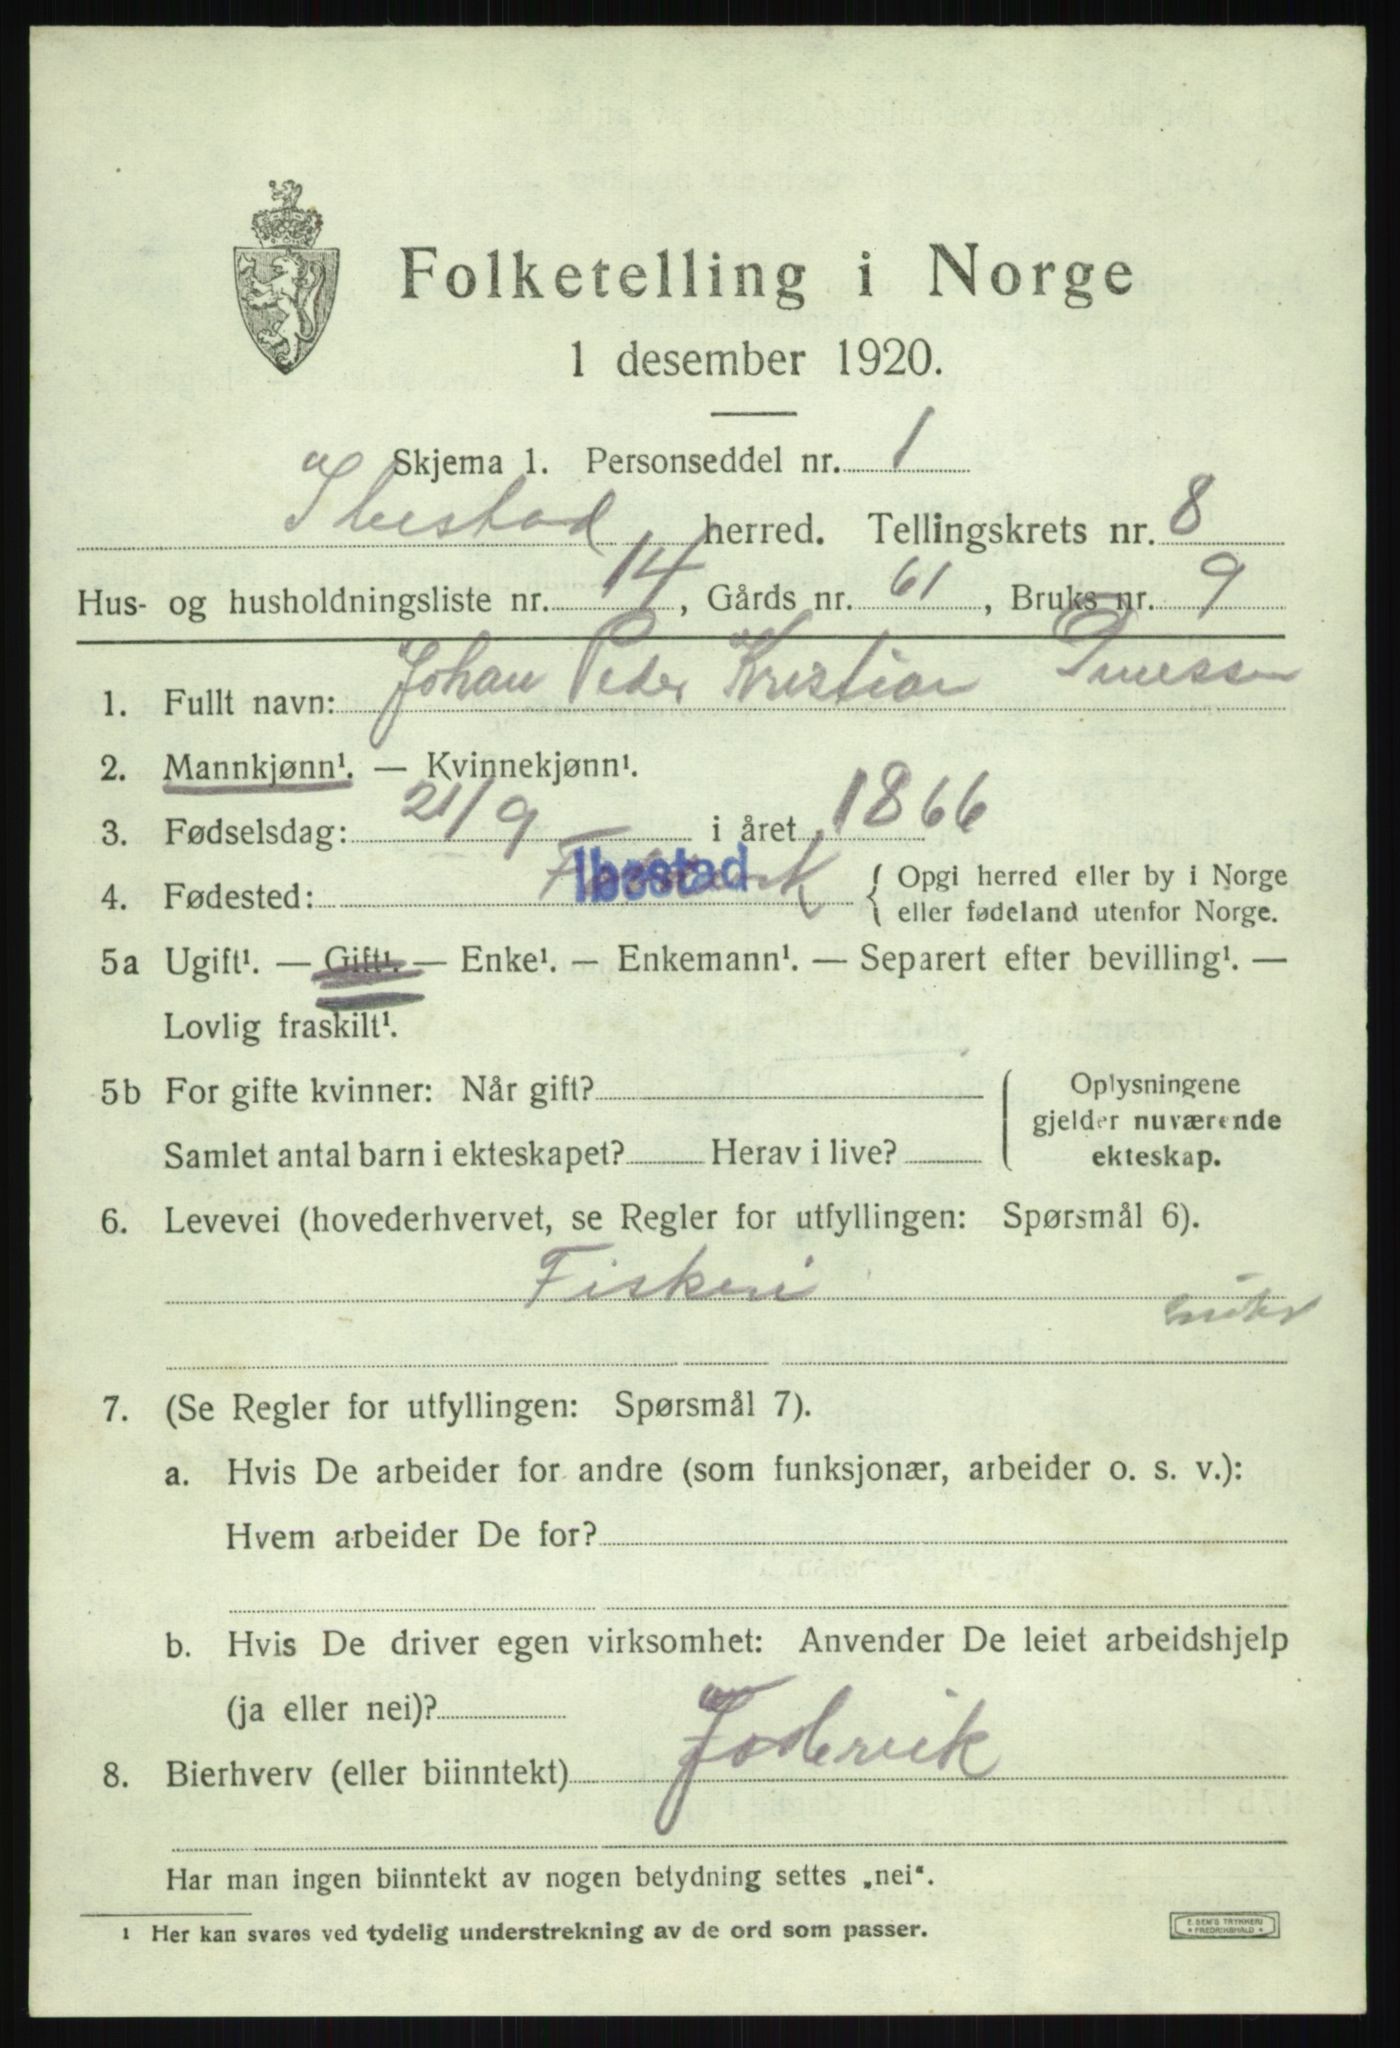 Folketelling i Norge
1 desember 1920.
Skjema 1. Personseddel nr. 1
Ibestad herred. Tellingskrets nr. 8
Hus- og husholdningsliste nr. 14, Gårds nr. 61, Bruks nr. 9
1. Fullt navn: Johan Peder Kristian
2. Mannkjønn¹. — Kvinnekjønn¹.
3. Fødselsdag: 21/9 i året 1866
4. Fødested: Ibestad { Opgi herred eller by i Norge
eller fødeland utenfor Norge.
5a Ugift¹. — Gift¹. — Enke¹. — Enkemann¹. — Separert efter bevilling¹. —
Lovlig fraskilt¹.
5b For gifte kvinner: Når gift? { Oplysningene
gjelder nuværende
Samlet antal barn i ekteskapet? Herav i live? ekteskap.
6. Levevei (hovederhvervet, se Regler for utfyllingen: Spørsmål 6).
Fiskeri
7. (Se Regler for utfyllingen: Spørsmål 7).
a. Hvis De arbeider for andre (som funksjonær, arbeider o. s. v.):
Hvem arbeider De for?
b. Hvis De driver egen virksomhet: Anvender De leiet arbeidshjelp
(ja eller nei)?
8. Bierhverv (eller biinntekt) Jordbruk
Har man ingen biinntekt av nogen betydning settes „nei“.
¹ Her kan svares ved tydelig understrekning av de ord som passer.
E. SEM'S TRYKKERI
* FREDRIKSHALD *